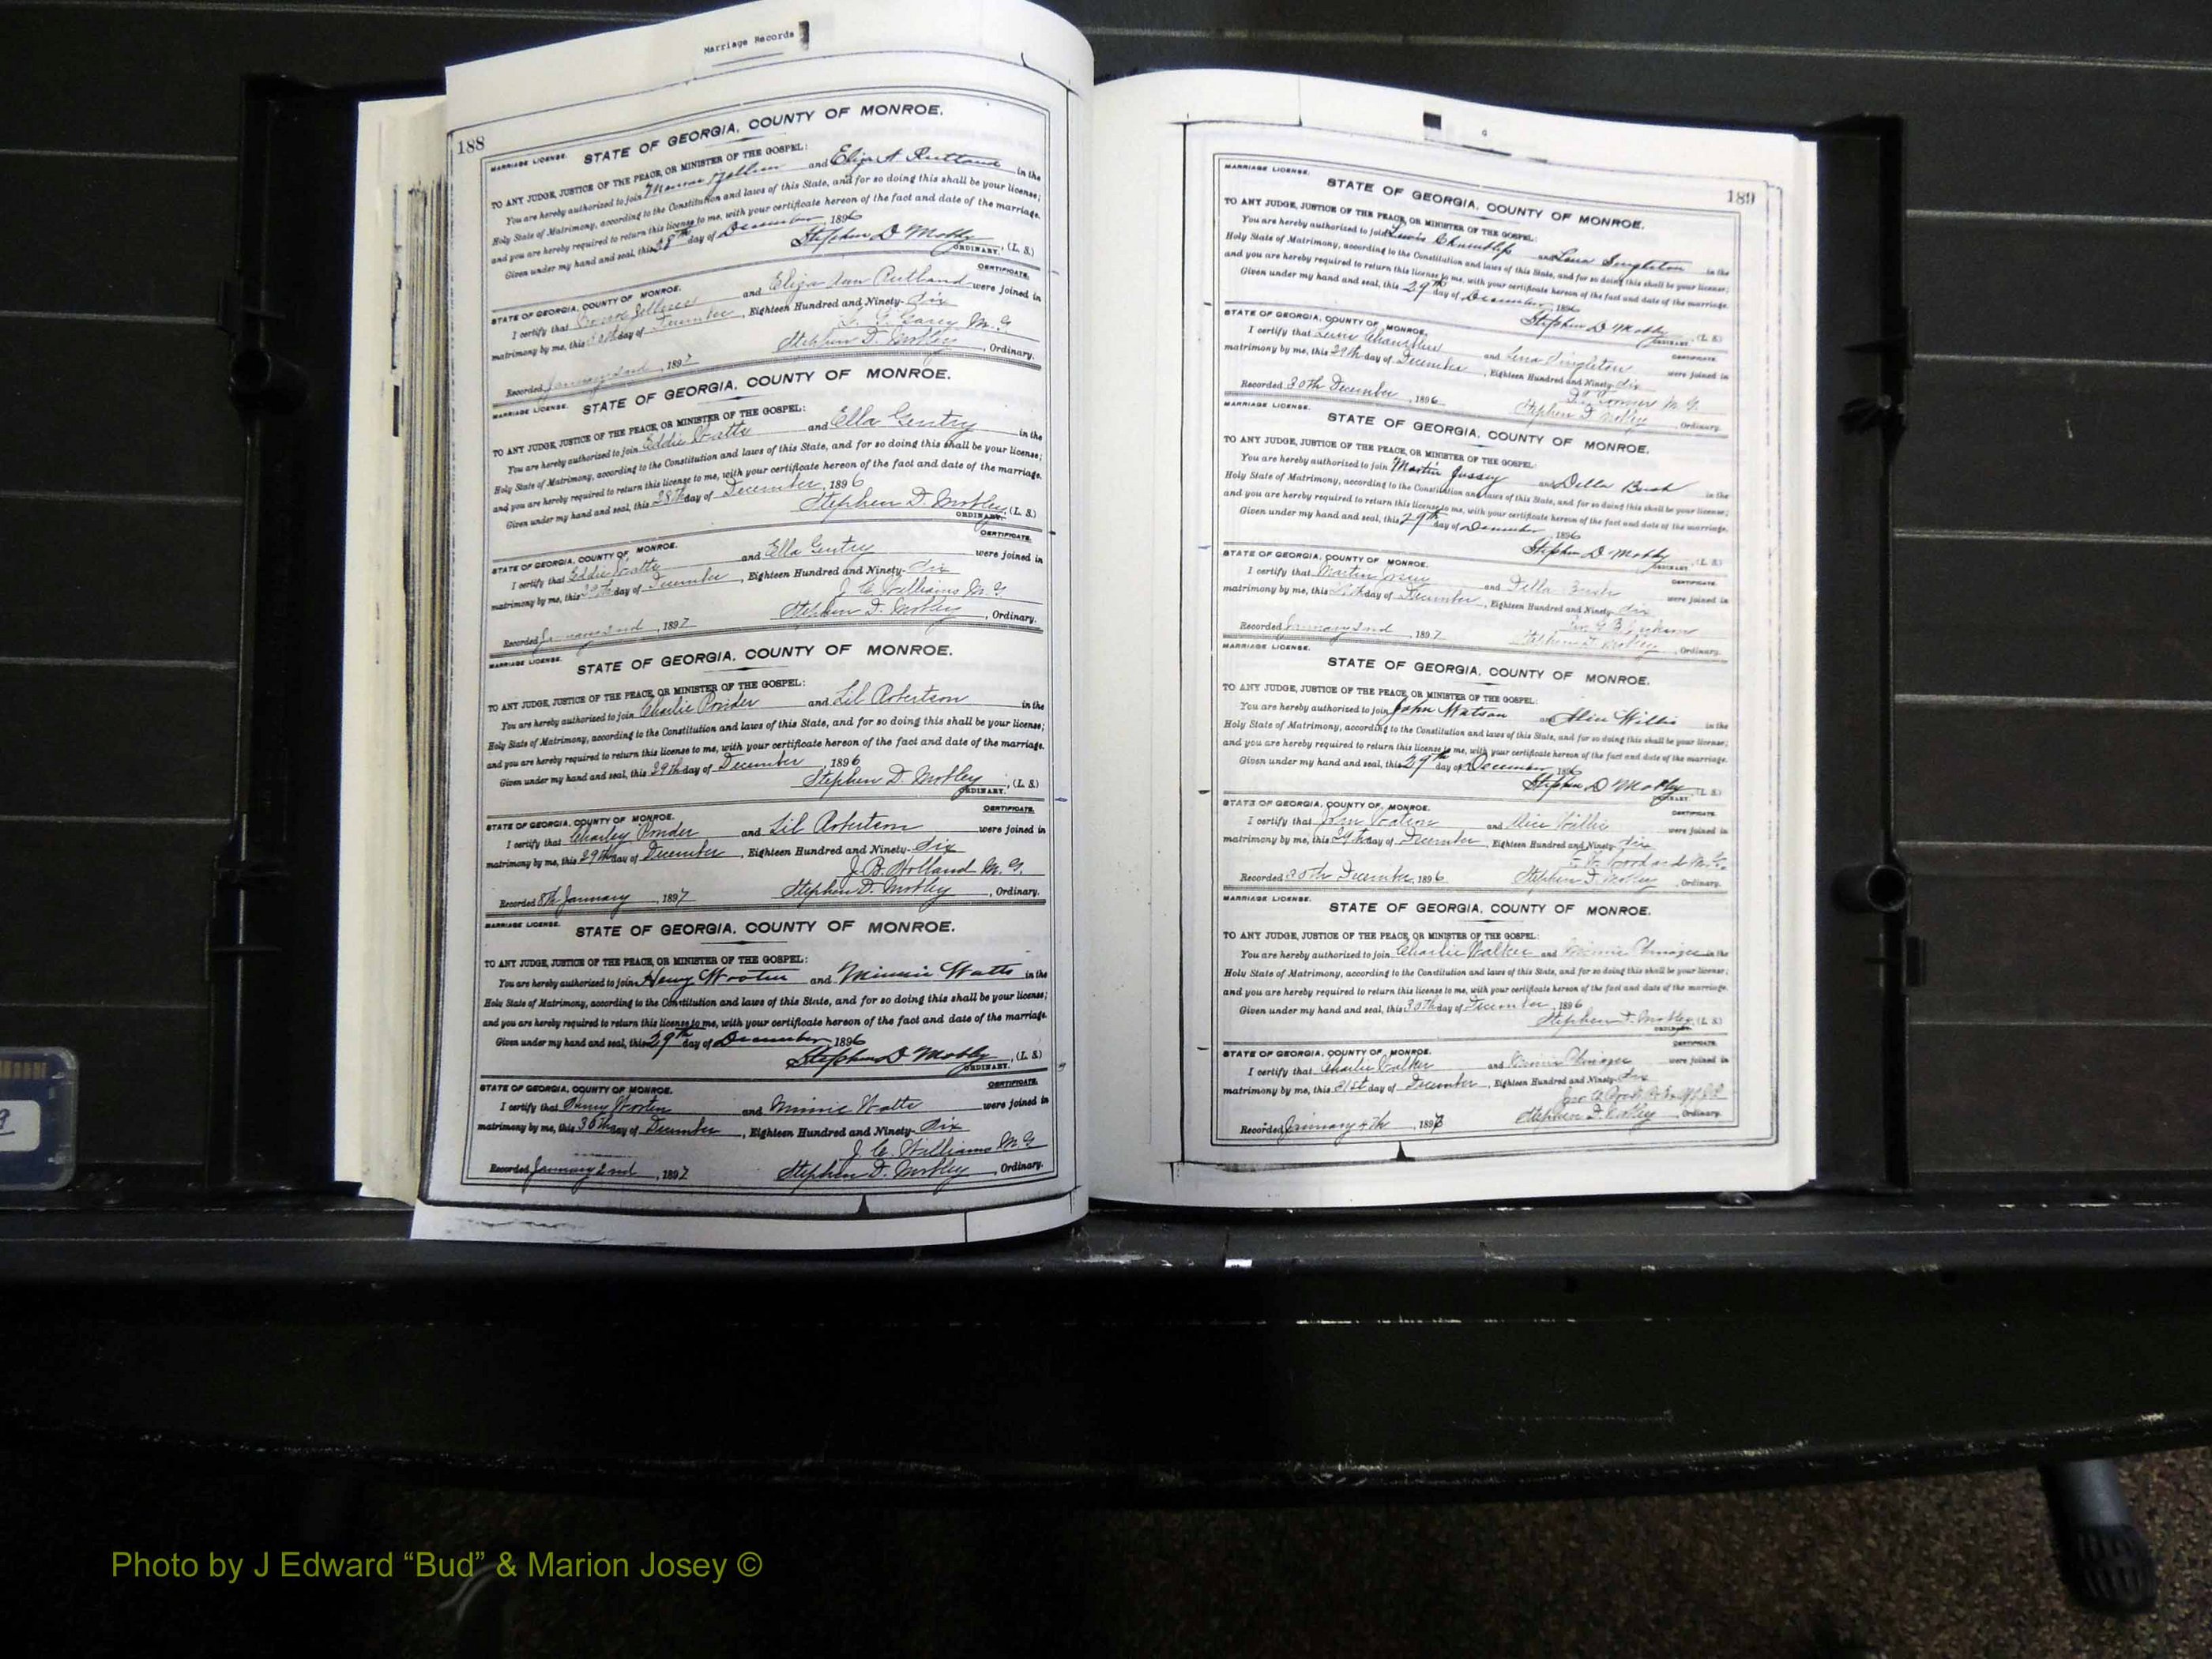 Marriage Records
188
MARRIAGE LICENSE. STATE OF GEORGIA, COUNTY OF MONROE.
TO ANY JUDGE, JUSTICE OF THE PEACE, OR MINISTER OF THE GOSPEL:
You are hereby authorized to join Monroe and Eliza A Rutland in the
Holy State of Matrimony, according to the Constitution and laws of this State, and for so doing this shall be your license;
and you are hereby required to return this license to me, with your certificate hereon of the fact and date of the marriage.
Given under my hand and seal, this 28th day of December, 1896
Stephen D Mobley, (L. S.)
ORDINARY.
CERTIFICATE.
STATE OF GEORGIA, COUNTY OF MONROE.
I certify that and Eliza Ann Rutland were joined in
matrimony by me, this day of December, Eighteen Hundred and Ninety-six
M. G.
Recorded January 2nd, 1897 Stephen D. Mobley, Ordinary.
MARRIAGE LICENSE. STATE OF GEORGIA, COUNTY OF MONROE.
TO ANY JUDGE, JUSTICE OF THE PEACE, OR MINISTER OF THE GOSPEL:
You are hereby authorized to join Eddie Watts and Ella Gentry in the
Holy State of Matrimony, according to the Constitution and laws of this State, and for so doing this shall be your license;
and you are hereby required to return this license to me, with your certificate hereon of the fact and date of the marriage.
Given under my hand and seal, this 28th day of December, 1896
Stephen D. Mobley, (L. S.)
ORDINARY.
CERTIFICATE.
STATE OF GEORGIA, COUNTY OF MONROE.
I certify that Eddie Watts and Ella Gentry were joined in
matrimony by me, this 29th day of December, Eighteen Hundred and Ninety-six
J. C. Williams M. G.
Recorded January 2nd, 1897 Stephen D. Mobley, Ordinary.
MARRIAGE LICENSE. STATE OF GEORGIA, COUNTY OF MONROE.
TO ANY JUDGE, JUSTICE OF THE PEACE, OR MINISTER OF THE GOSPEL:
You are hereby authorized to join Charlie Ponder and Lil Robertson in the
Holy State of Matrimony, according to the Constitution and laws of this State, and for so doing this shall be your license;
and you are hereby required to return this license to me, with your certificate hereon of the fact and date of the marriage.
Given under my hand and seal, this 29th day of December, 1896
Stephen D. Mobley, (L. S.)
ORDINARY.
CERTIFICATE.
STATE OF GEORGIA, COUNTY OF MONROE.
I certify that Charley Ponder and Lil Robertson were joined in
matrimony by me, this 29th day of December, Eighteen Hundred and Ninety-six
J. B. Holland M. G.
Recorded 8th January, 1897 Stephen D. Mobley, Ordinary.
MARRIAGE LICENSE. STATE OF GEORGIA, COUNTY OF MONROE.
TO ANY JUDGE, JUSTICE OF THE PEACE, OR MINISTER OF THE GOSPEL:
You are hereby authorized to join Henry Wooten and Minnie Watts in the
Holy State of Matrimony, according to the Constitution and laws of this State, and for so doing this shall be your license;
and you are hereby required to return this license to me, with your certificate hereon of the fact and date of the marriage.
Given under my hand and seal, this 29th day of December, 1896
Stephen D Mobley, (L. S.)
ORDINARY.
CERTIFICATE.
STATE OF GEORGIA, COUNTY OF MONROE.
I certify that Henry Wooten and Minnie Watts were joined in
matrimony by me, this 30th day of December, Eighteen Hundred and Ninety-six
J. C. Williams M. G.
Recorded January 2nd, 1897 Stephen D. Mobley, Ordinary.
189
MARRIAGE LICENSE. STATE OF GEORGIA, COUNTY OF MONROE.
TO ANY JUDGE, JUSTICE OF THE PEACE, OR MINISTER OF THE GOSPEL:
You are hereby authorized to join Lewis and Lena Singleton in the
Holy State of Matrimony, according to the Constitution and laws of this State, and for so doing this shall be your license;
and you are hereby required to return this license to me, with your certificate hereon of the fact and date of the marriage.
Given under my hand and seal, this 29th day of December, 1896
Stephen D Mobley (L. S.)
ORDINARY.
CERTIFICATE.
STATE OF GEORGIA, COUNTY OF MONROE.
I certify that Lewis and Lena Singleton were joined in
matrimony by me, this 29th day of December, Eighteen Hundred and Ninety-six
M. G.
Recorded 30th December, 1896 Stephen D. Mobley, Ordinary.
MARRIAGE LICENSE. STATE OF GEORGIA, COUNTY OF MONROE.
TO ANY JUDGE, JUSTICE OF THE PEACE, OR MINISTER OF THE GOSPEL:
You are hereby authorized to join Martin Jossey and Della Bush in the
Holy State of Matrimony, according to the Constitution and laws of this State, and for so doing this shall be your license;
and you are hereby required to return this license to me, with your certificate hereon of the fact and date of the marriage.
Given under my hand and seal, this 29th day of December, 1896
Stephen D Mobley (L. S.)
ORDINARY.
CERTIFICATE.
STATE OF GEORGIA, COUNTY OF MONROE.
I certify that Martin and Della Bush were joined in
matrimony by me, this day of December, Eighteen Hundred and Ninety-six
Recorded January 2nd, 1897 Stephen D. Mobley, Ordinary.
MARRIAGE LICENSE.
STATE OF GEORGIA, COUNTY OF MONROE.
TO ANY JUDGE, JUSTICE OF THE PEACE, OR MINISTER OF THE GOSPEL:
You are hereby authorized to join John Watson and Alice Willis in the
Holy State of Matrimony, according to the Constitution and laws of this State, and for so doing this shall be your license;
and you are hereby required to return this license to me, with your certificate hereon of the fact and date of the marriage.
Given under my hand and seal, this 29th day of December, 1896
Stephen D Mobley (L. S.)
ORDINARY.
CERTIFICATE.
STATE OF GEORGIA, COUNTY OF MONROE.
I certify that John Watson and Alice Willis were joined in
matrimony by me, this 29th day of December, Eighteen Hundred and Ninety-six
M. G.
Recorded 30th December, 1896 Stephen D. Mobley, Ordinary.
MARRIAGE LICENSE.
STATE OF GEORGIA, COUNTY OF MONROE.
TO ANY JUDGE, JUSTICE OF THE PEACE, OR MINISTER OF THE GOSPEL:
You are hereby authorized to join Charlie Walker and Minnie in the
Holy State of Matrimony, according to the Constitution and laws of this State, and for so doing this shall be your license;
and you are hereby required to return this license to me, with your certificate hereon of the fact and date of the marriage.
Given under my hand and seal, this 30th day of December, 1896
Stephen D. Mobley, (L. S.)
ORDINARY.
CERTIFICATE.
STATE OF GEORGIA, COUNTY OF MONROE.
I certify that Charlie Walker and Minnie were joined in
matrimony by me, this 31st day of December, Eighteen Hundred and Ninety-six
Recorded January 4th, 1897 Stephen D. Mobley, Ordinary.
Photo by J Edward “Bud” & Marion Josey ©